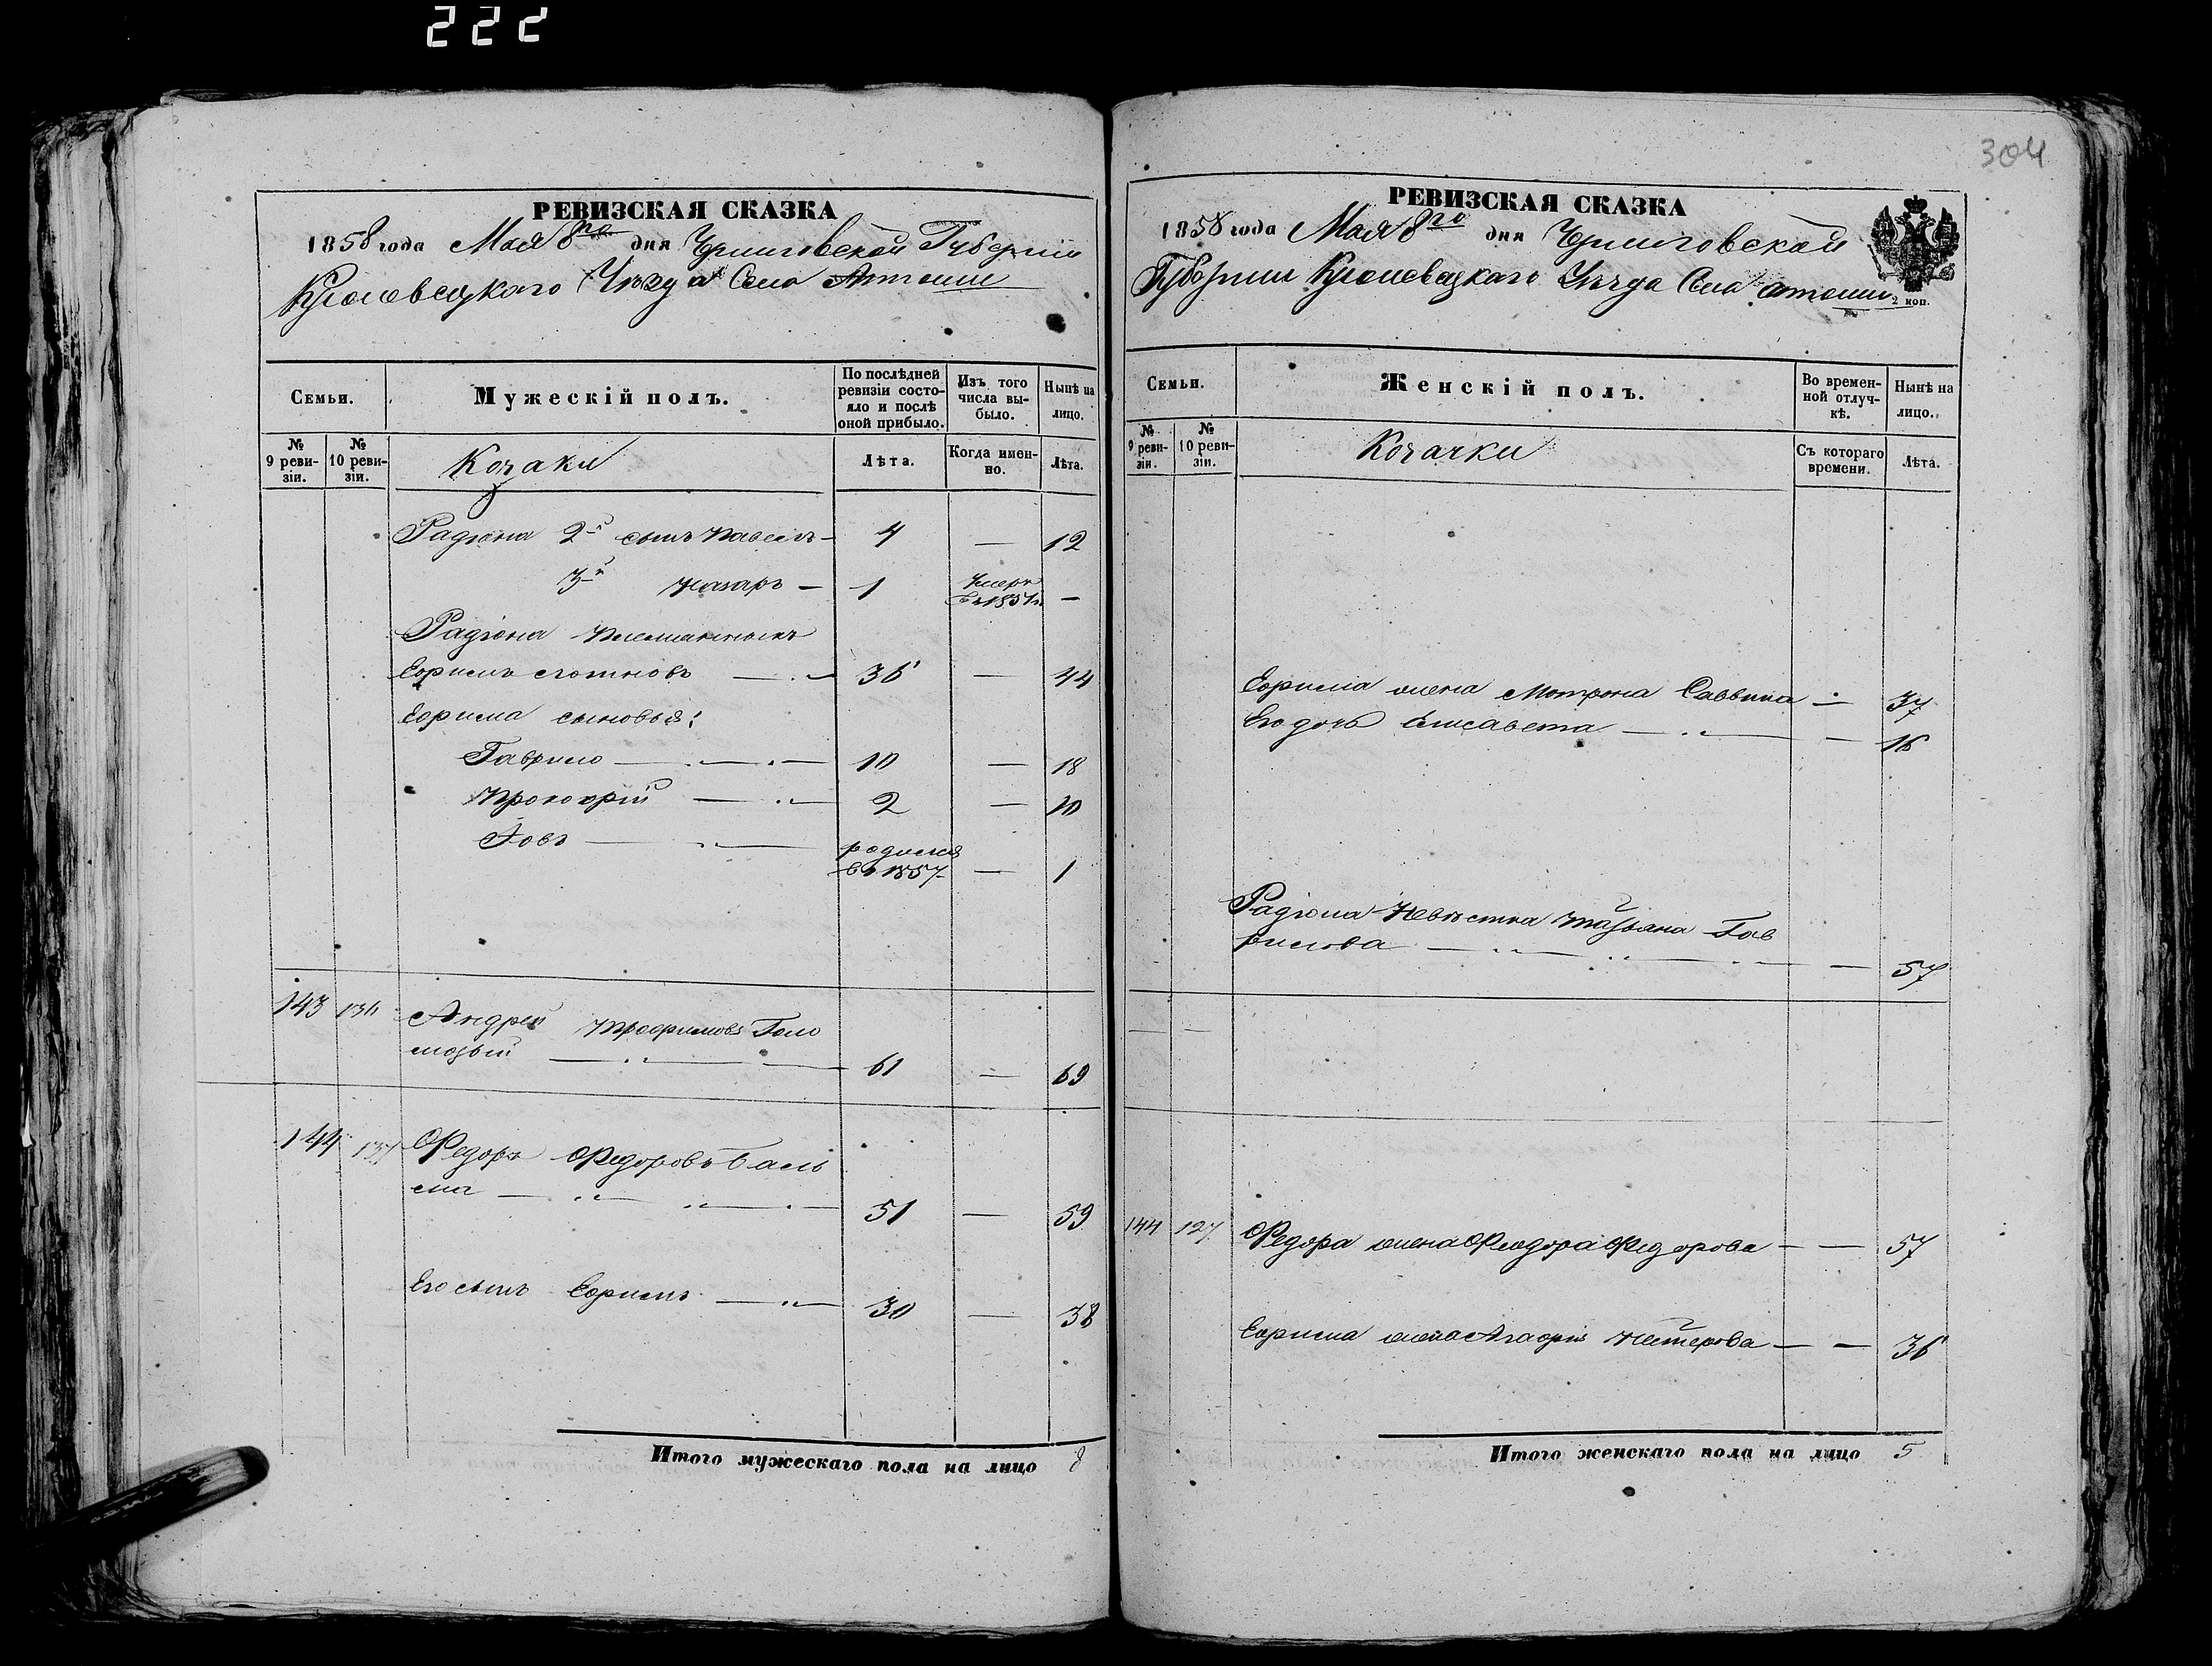 222
304
РЕВИЗСКАЯ СКАЗКА
1858 года Мая 8го дня Черниговской Губерніи
Кролевецкаго Уѣзда Села
Семьи.
Мужескій полъ.
По послѣдней ревизіи состояло и послѣ оной прибыло.
Изъ того числа выбыло.
Нынѣ на лицо.
№ 9 ревизіи.
№ 10 ревизіи.
Козаки
Лѣта.
Когда именно.
Лѣта.
Радіона 2й сынъ Павелъ — 4 — 12
3й Назаръ — 1 Умеръ въ 1851 г. —
Радіона племянникъ
Ефимъ 36 — 44
Ефима сыновья:
Гаврило — 10 — 18
Прокофій — 2 — 10
Іовъ — родился
въ 1857 — 1
143 136 Андрей Трофимовъ Голо
мозый — 61 — 69
144 137 Федоръ Федоровъ
51 — 59
Его сынъ Ефимъ — 30 — 38
Итого мужескаго пола на лицо 8
РЕВИЗСКАЯ СКАЗКА
1858 года Мая 8го дня Черниговской
Губерніи Кролевецкаго Уѣзда Села
2 коп.
Семьи.
Женскій полъ.
Во временной отлучкѣ.
Нынѣ на лицо.
№ 9 ревизіи.
№ 10 ревизіи.
Козачки
Съ котораго времени.
Лѣта.
Ефима жена Мотрона Саввина — 37
Его дочь Елисавета — — 16
Радіона Невѣстка Татьяна Гав
рилова — — 57
144 127 Федора жена Феодора Федорова — — 57
Ефима жена Агафія Нестерова — — 36
Итого женскаго пола на лицо 5